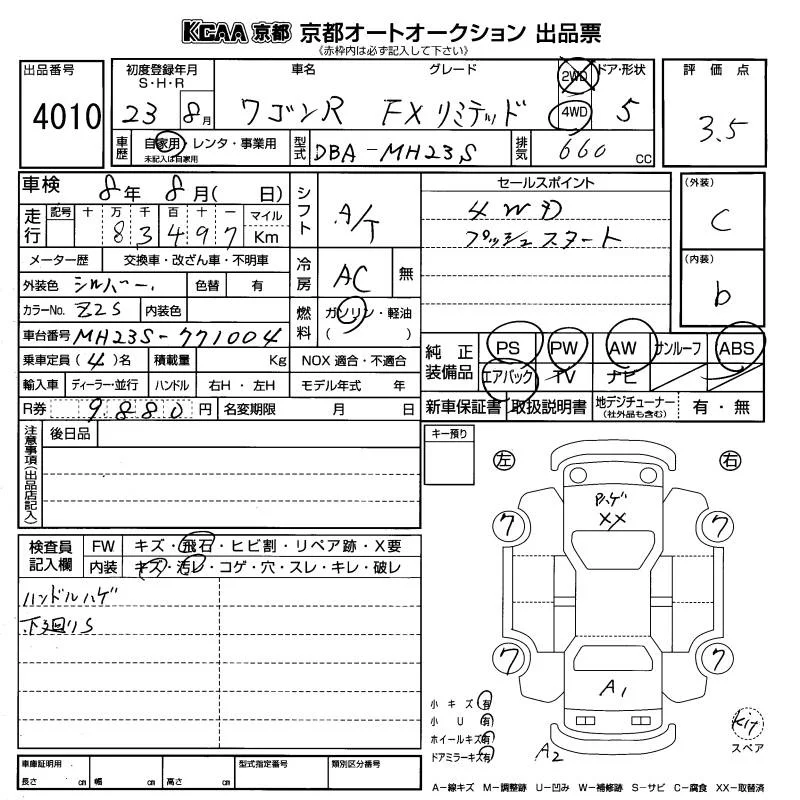 KCAA 京都 京都オートオークション 出品票
《赤枠内は必ず記入して下さい》
出品番号
4010
初度登録年月
S・H・R
23 8月
車名
ワゴンR
グレード
FXリミテッド
2WD
4WD
ドア・形状
5
評価点
3.5
車歴
自家用・レンタ・事業用
未記入は自家用
型式
DBA-MH23S
排気
660 cc
車検
8年 8月( 日)
走行
記号 十 万 千 百 十 一 マイル
8 3 4 9 7 Km
メーター歴 交換車・改ざん車・不明車
外装色 シルバー 色替 有
カラーNo. Z2S 内装色
車台番号 MH23S-771004
乗車定員(4)名 積載量 Kg
輸入車 ディーラー・並行 ハンドル 右H・左H
R券 9880円 名変期限 月 日
シフト
A/T
冷房
AC 無
燃料
ガソリン・軽油
( )
NOX 適合・不適合
モデル年式 年
セールスポイント
4WD
プッシュスタート
(外装)
C
(内装)
b
純正装備品
PS PW AW サンルーフ ABS
エアバック TV ナビ
新車保証書 取扱説明書 地デジチューナー(社外品も含む) 有・無
注意事項(出品店記入)
後日品
キー預り
左 右
ハゲ
XX
ワ ワ
ワ ワ
A1
A2
検査員記入欄
FW キズ・飛石・ヒビ割・リペア跡・X要
内装 キズ・汚レ・コゲ・穴・スレ・キレ・破レ
ハンドルハゲ
下廻りS
小キズ 有
小U 有
ホイールキズ 有
ドアミラーキズ 有
Kit
スペア
車庫証明用
長さ cm 幅 cm 高さ cm
型式指定番号
類別区分番号
A-線キズ M-調整跡 U-凹み W-補修跡 S-サビ C-腐食 XX-取替済